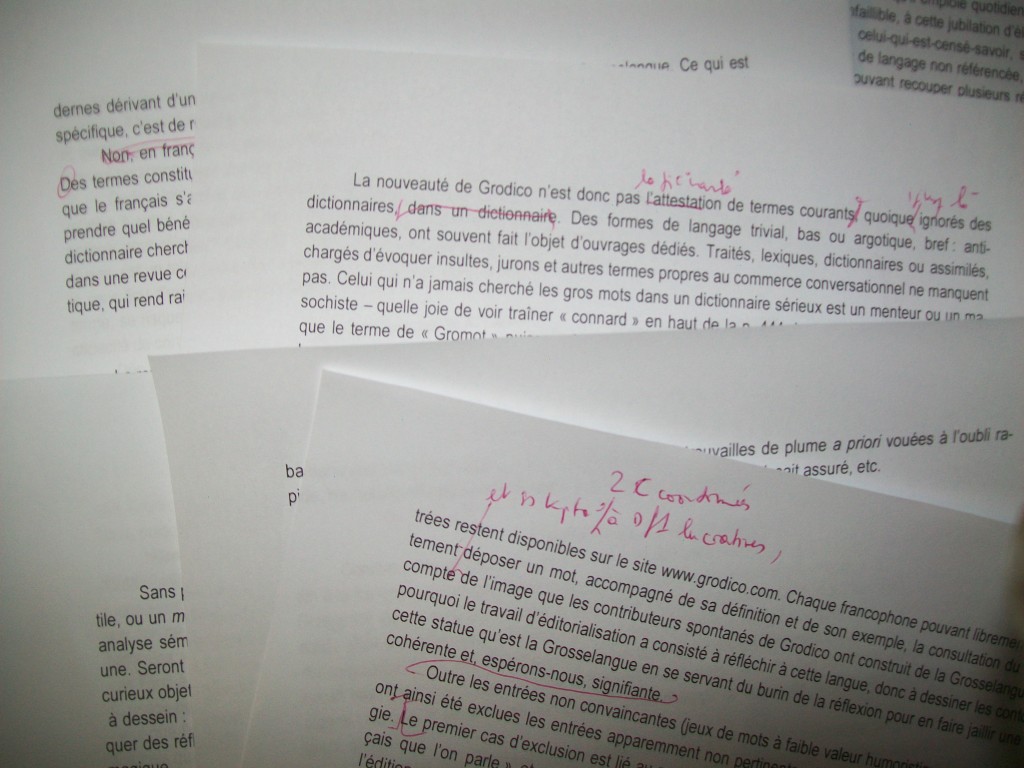 emploie quotidien
infaillible, à cette jubilation d'é
celui-qui-est-censé-savoir, s
de langage non référencée,
ouvant recouper plusieurs ré
dernes dérivant d'un
spécifique, c'est de r
Non, en franç
Des termes constitu
que le français s'a
prendre quel béné
dictionnaire cherch
dans une revue ce
tique, qui rend rai
Ce qui est
La nouveauté de Grodico n'est donc pas l'attestation de termes courants, quoique ignorés des
dictionnaires, dans un dictionnaire. Des formes de langage trivial, bas ou argotique, bref : anti-
académiques, ont souvent fait l'objet d'ouvrages dédiés. Traités, lexiques, dictionnaires ou assimilés,
chargés d'évoquer insultes, jurons et autres termes propres au commerce conversationnel ne manquent
pas. Celui qui n'a jamais cherché les gros mots dans un dictionnaire sérieux est un menteur ou un ma-
sochiste – quelle joie de voir traîner « connard » en haut de la p.
que le terme de « Gromot »
ouvailles de plume a priori vouées à l'oubli ra-
ait assuré, etc.
ba
pi
Sans
tile, ou un m
analyse sém
une. Seront
curieux objet
à dessein :
quer des réfl
magique
2 € coordonnés
et
lucratives,
trées restent disponibles sur le site www.grodico.com. Chaque francophone pouvant libreme
tement déposer un mot, accompagné de sa définition et de son exemple, la consultation du
compte de l'image que les contributeurs spontanés de Grodico ont construit de la Grosselangu
pourquoi le travail d'éditorialisation a consisté à réfléchir à cette langue, donc à dessiner les cont
cette statue qu'est la Grosselangue en se servant du burin de la réflexion pour en faire jaillir une
cohérente et, espérons-nous, signifiante.
Outre les entrées non convaincantes (jeux de mots à faible valeur humoristi
ont ainsi été exclues les entrées apparemment non pertinen
gie. Le premier cas d'exclusion est lié au
çais que l'on parle »
l'édition